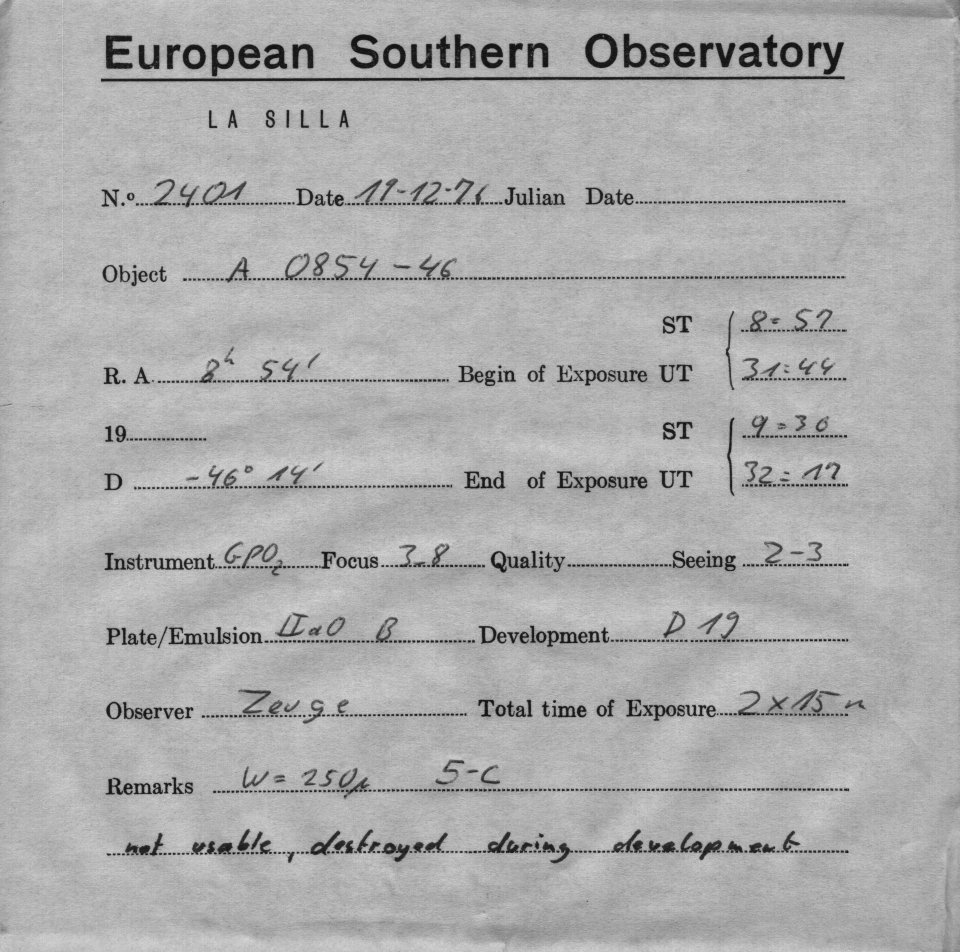 European Southern Observatory
LA SILLA
N.º 2401 Date 19-12-76 Julian Date
Object A 0854-46
ST 8=57
R. A. 8h 54' Begin of Exposure UT 31=44
19
ST 9=30
D -46° 14' End of Exposure UT 32=17
Instrument GPO2 Focus 3-8 Quality Seeing 2-3
Plate/Emulsion IIaO B Development D 19
Observer Zeuge Total time of Exposure 2x15 m
Remarks W=250μ 5-C
not usable, destroyed during development